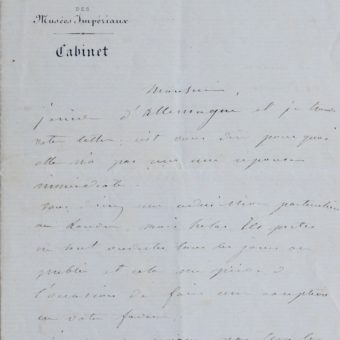 DES
Musées Impériaux
Cabinet
Monsieur,
j'arrive d'Allemagne et je trouve
votre lettre. c'est vous dire pourquoi
elle n'a pas une réponse
immédiate.
Vous une admission particulière
au Louvre, mais hélas les portes
en sont ouvertes tous les jours au
public et cela me prive de
l'occasion de faire une exception
en votre faveur.